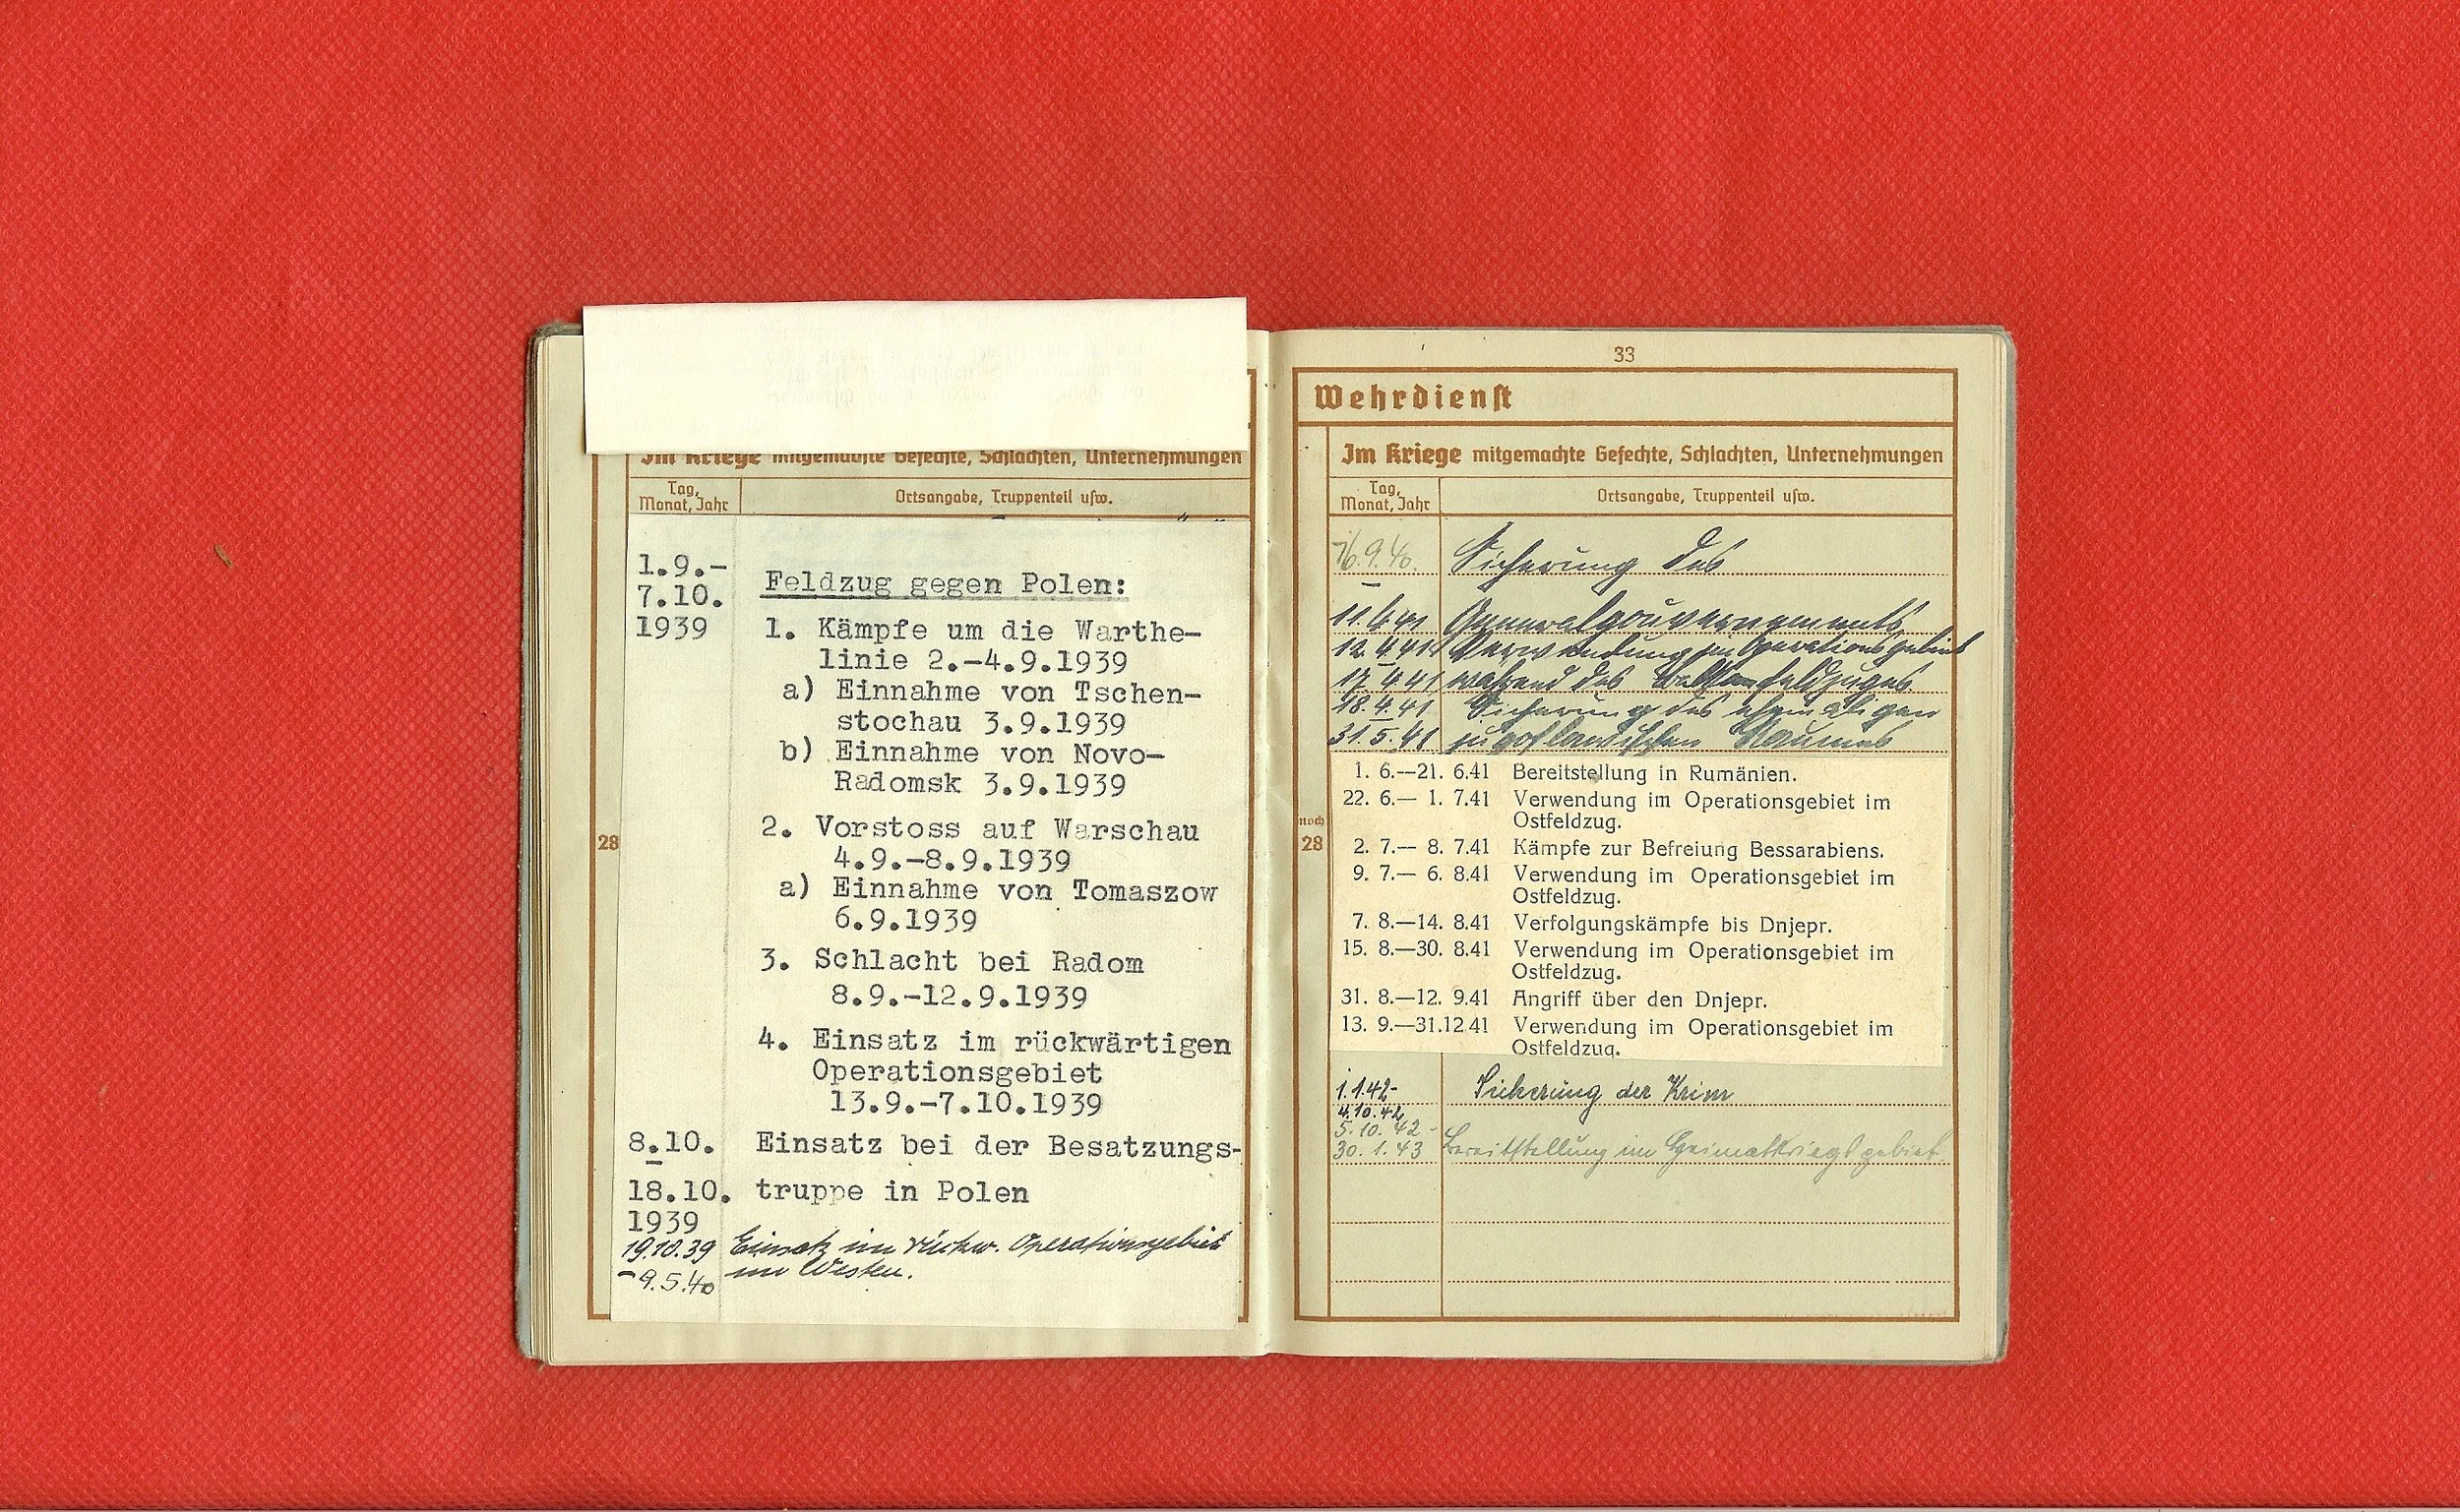 Im Kriege mitgemachte Gefechte, Schlachten, Unternehmungen
Tag,
Monat, Jahr
Ortsangabe, Truppenteil usw.
1.9.-
7.10.
1939
Feldzug gegen Polen:
1. Kämpfe um die Warthe-
linie 2.-4.9.1939
a) Einnahme von Tschen-
stochau 3.9.1939
b) Einnahme von Novo-
Radomsk 3.9.1939
2. Vorstoss auf Warschau
4.9.-8.9.1939
a) Einnahme von Tomaszow
6.9.1939
3. Schlacht bei Radom
8.9.-12.9.1939
4. Einsatz im rückwärtigen
Operationsgebiet
13.9.-7.10.1939
8.10. Einsatz bei der Besatzungs-
-
18.10. truppe in Polen
1939
19.10.39 Einsatz im rückw. Operationsgebiet
-9.5.40 im Westen.
28
33
Wehrdienst
Im Kriege mitgemachte Gefechte, Schlachten, Unternehmungen
Tag,
Monat, Jahr
Ortsangabe, Truppenteil usw.
noch
28
16.9.40. Sicherung des
-
11.4.41 Generalgouvernements
12.4.41 Verwendung im Operationsgebiet
17.4.41 während des Balkanfeldzuges
18.4.41 Sicherung des ehemaligen
31.5.41 jugoslawischen Raumes
1. 6.—21. 6.41 Bereitstellung in Rumänien.
22. 6.— 1. 7.41 Verwendung im Operationsgebiet im
Ostfeldzug.
2. 7.— 8. 7.41 Kämpfe zur Befreiung Bessarabiens.
9. 7.— 6. 8.41 Verwendung im Operationsgebiet im
Ostfeldzug.
7. 8.—14. 8.41 Verfolgungskämpfe bis Dnjepr.
15. 8.—30. 8.41 Verwendung im Operationsgebiet im
Ostfeldzug.
31. 8.—12. 9.41 Angriff über den Dnjepr.
13. 9.—31.12.41 Verwendung im Operationsgebiet im
Ostfeldzug.
1.1.42- Sicherung der Krim
4.10.42
5.10.42-
30.1.43 Bereitstellung im Heimatkriegsgebiet.